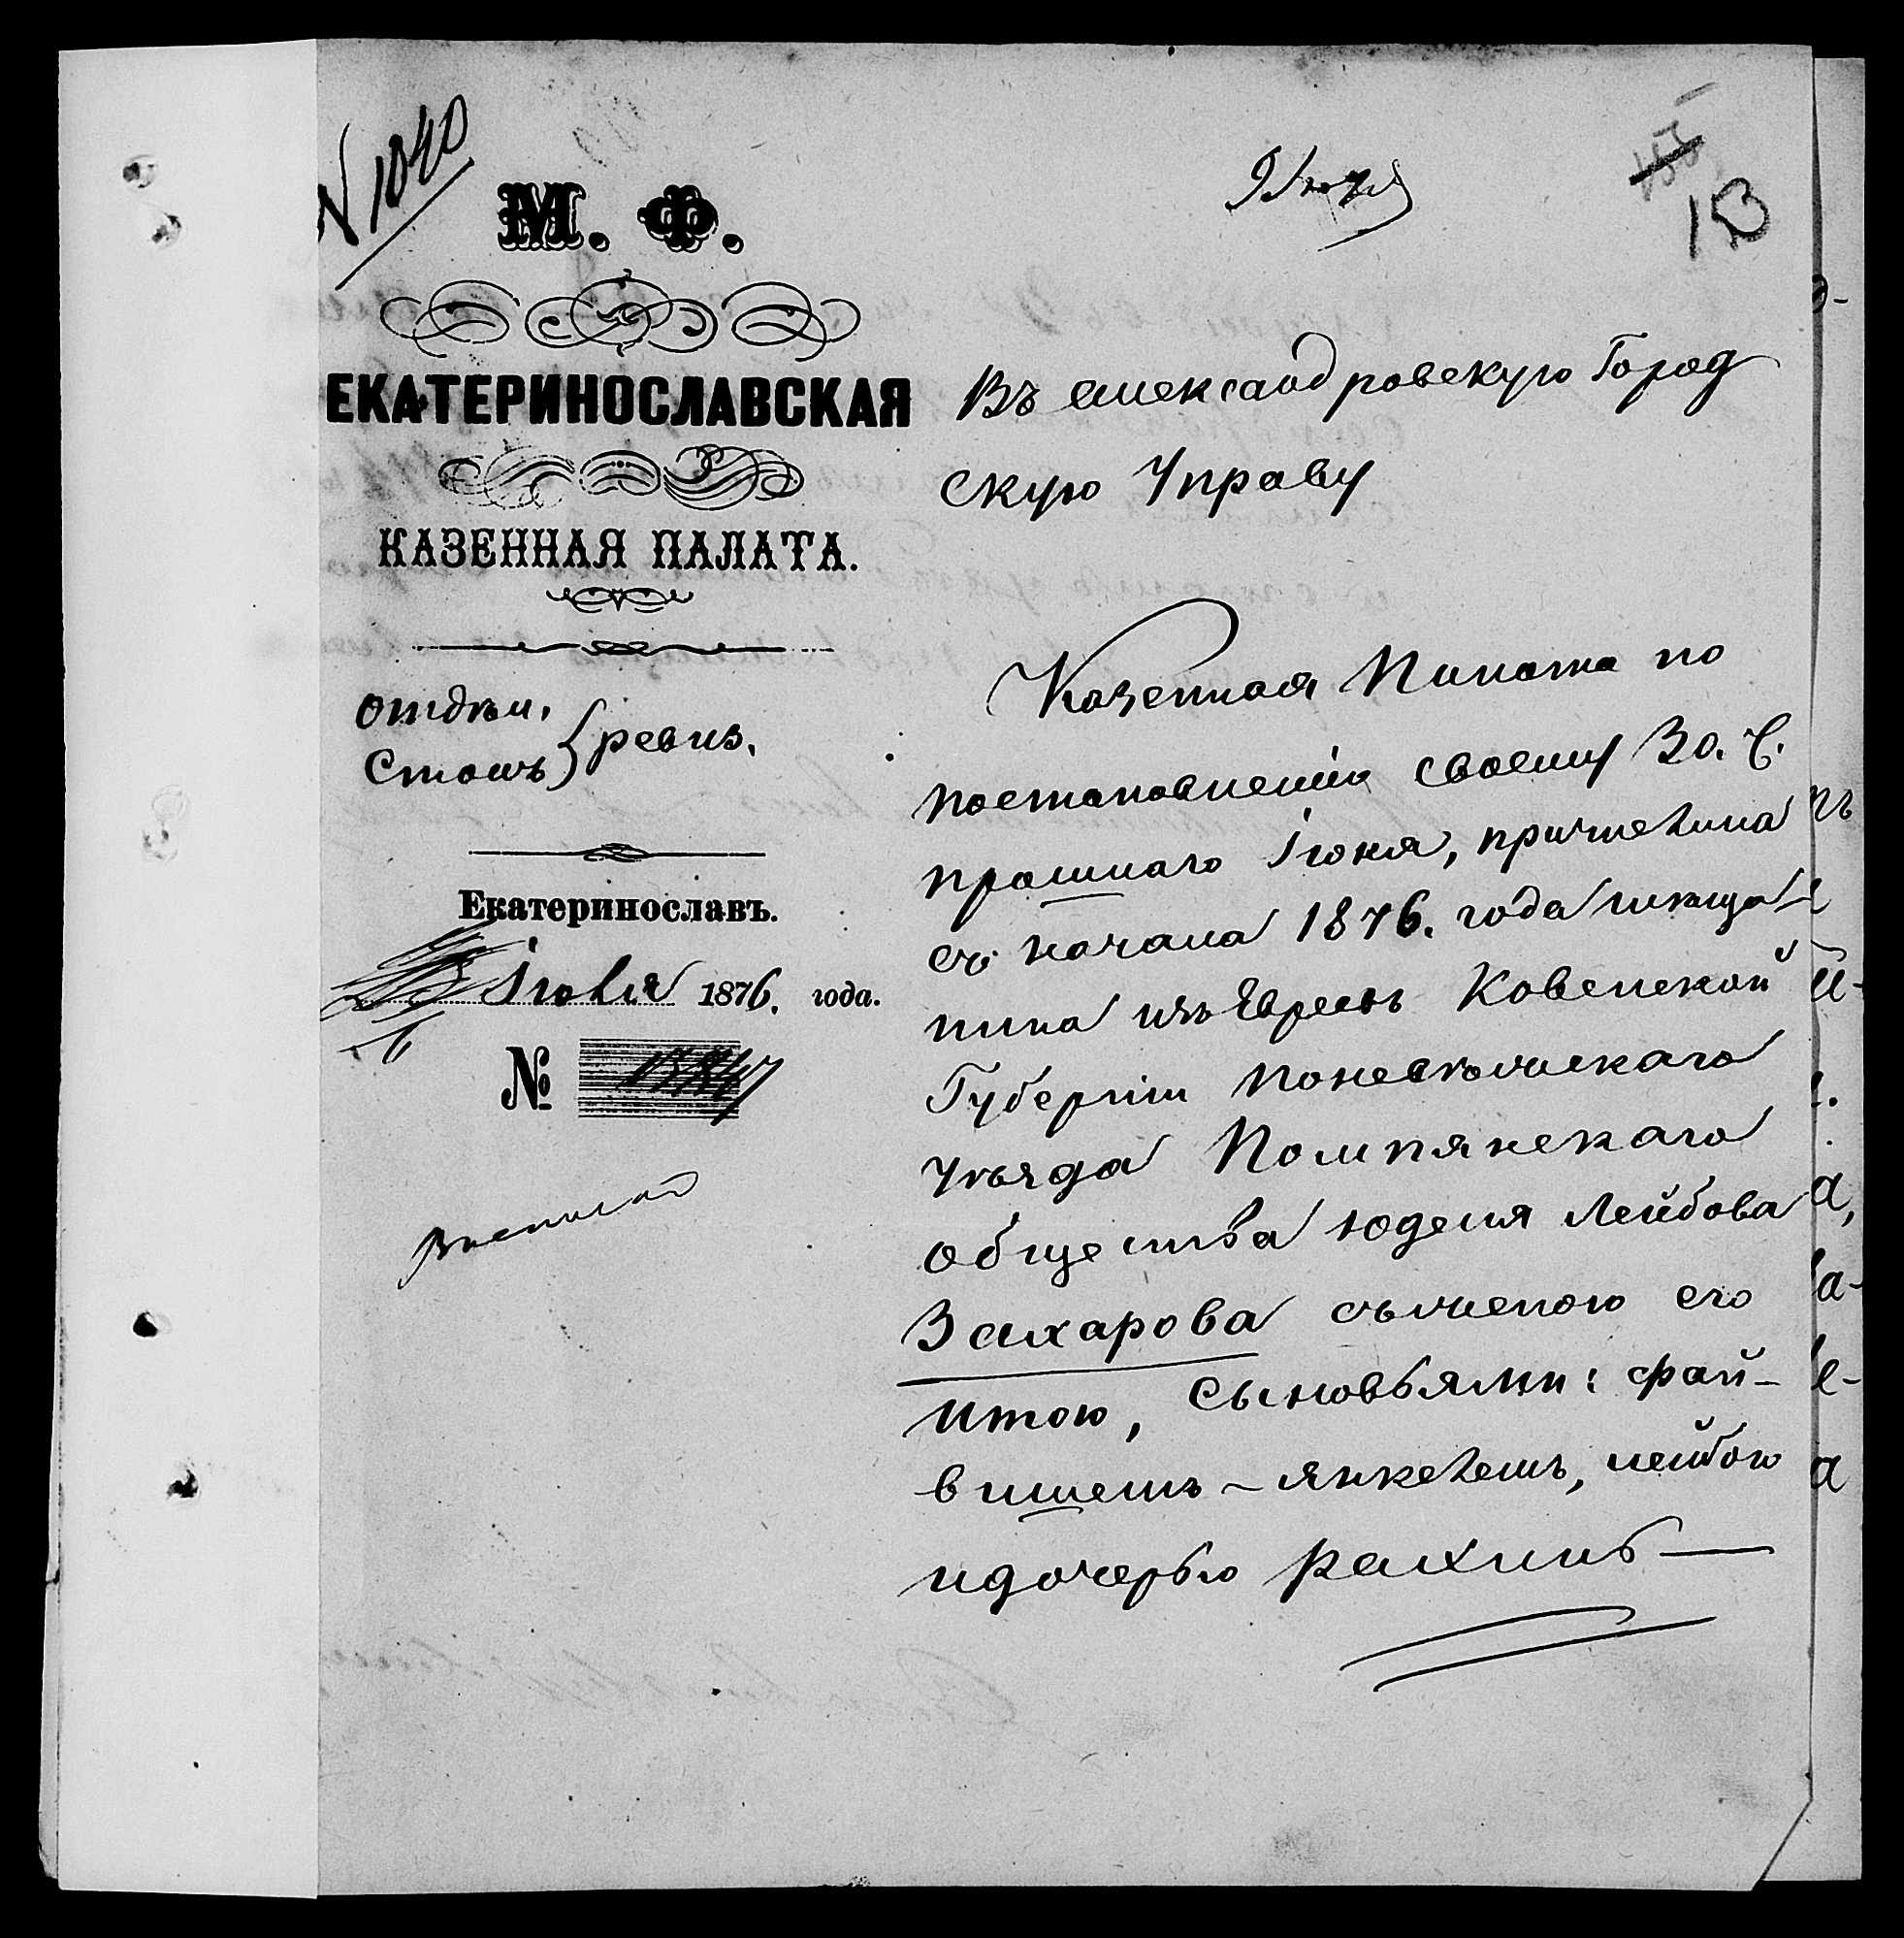 N 1040
М. Ф.
ЕКАТЕРИНОСЛАВСКАЯ
КАЗЕННАЯ ПАЛАТА.
Отдѣл.
Столъ } ревиз.
Екатеринославъ.
Іюля 1876. года.
№
9 Іюля
153
Въ Александровскую Город
скую Управу
Казенная Палата по
постановленію своему 30. ч.
прошлаго Іюня, причислила
съ начала 1876. года въ
изъ Евреевъ Ковенской
Губерніи Поневѣжскаго
уѣзда Помпянскаго
общества Юделя Лейбова
Захарова съ женою его
Итою, сыновьями: Фай-
вишемъ-Янкелемъ, Лейбою
и дочерью Рахиль